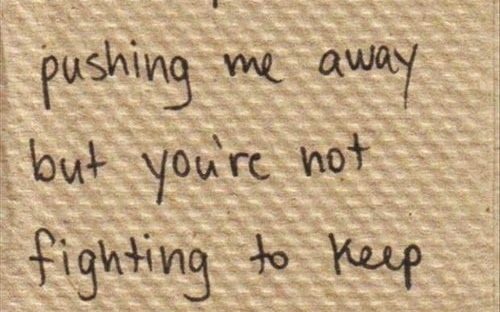 pushing me away
but you're not
fighting to keep